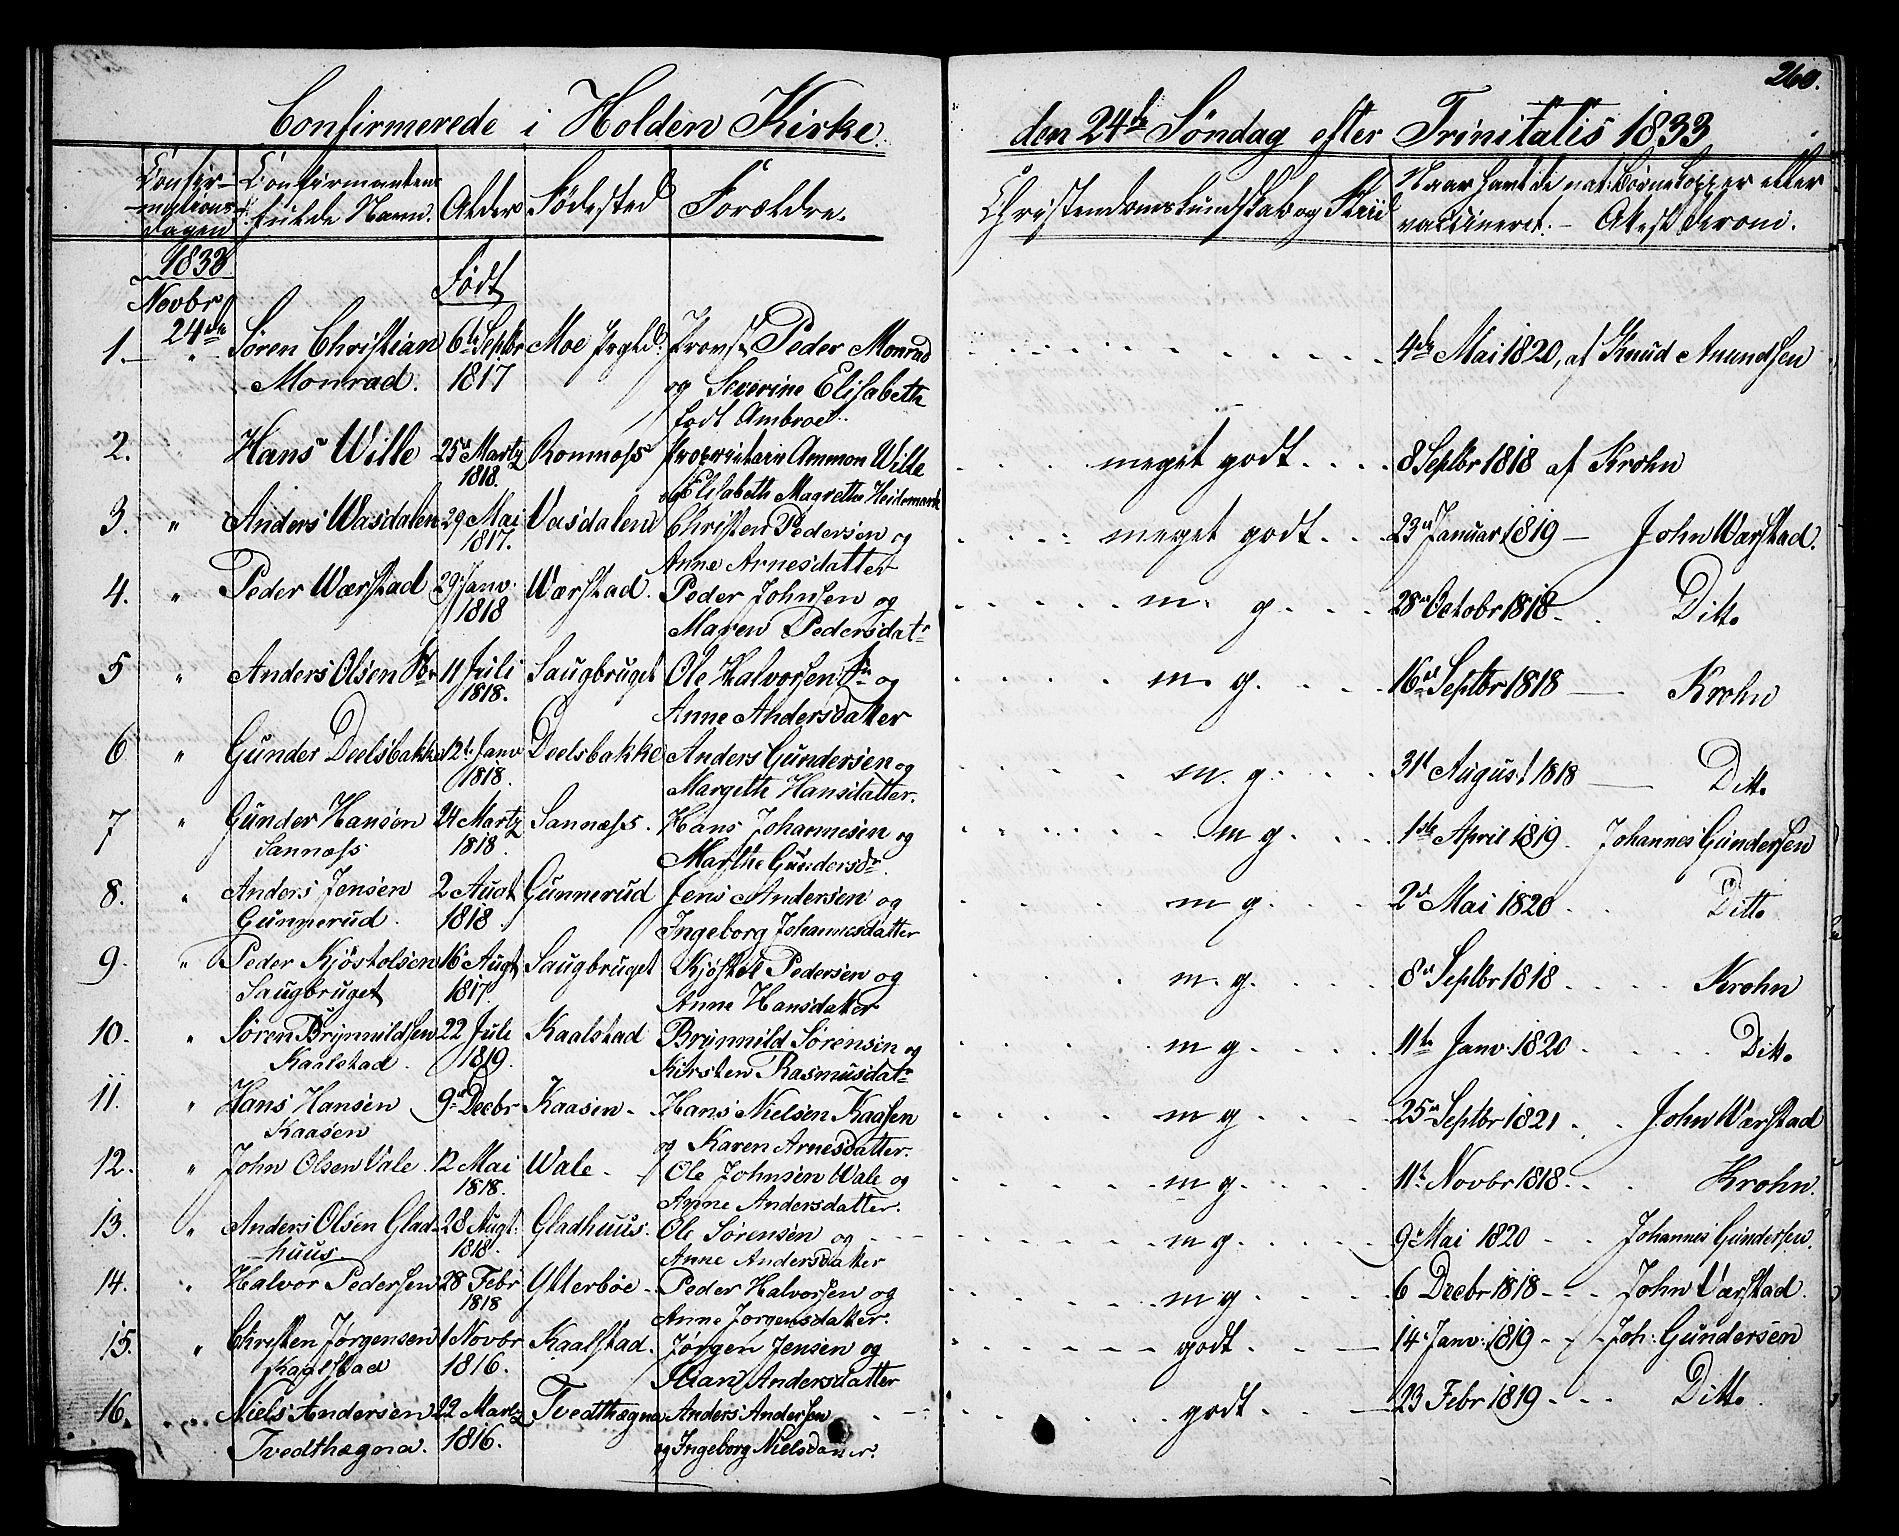 260.
Confirmerede i Holden Kirke.
den 24de Søndag efter Trinitatis 1833
Confir- mations- dagen
Confirmantens fulde Navn.
Alder
Fødested
Forældre.
Christendomskundskab og Fliid
Naar havt de nat: Børnekopper eller vaccineret. - Attest derom.
1833
Novbr
24de
Født
1. - " Søren Christian 6te Septbr Moe Prgld. Provst Peder Monrad 4de Mai 1820, af Knud Amundsen
Monrad. 1817 og Severine Elisabeth
født Ambroe..
2. " Hans Wille 25de Martz Romnæss Proprietair Ammon Wille meget godt 8 Septbr 1818 af Krohn
1818. og Elisabeth Magrethe Heidemark
3. " Anders Wasdalen 29 Mai Vasdalen Christen Pedersen og meget godt 23de Januar 1819 - John Wærstad.
1817. Anne Arnesdatter
4. " Peder Wærstad 29 Janv. Wærstad. Peder Johnsen og m. g. 28de Octobr 1818 Ditto
1818 Maren Pedersdatr
5 " Anders Olsen 11 Juli Saugbruget Ole Halvorsen og m. g. 16de Septbr 1818 - Krohn
1818. Anne Andersdatter
6 " Gunder Deelsbakke 12te Janv Deelsbakke Anders Gundersen og m. g. 31te August 1818 - Ditto
1818. Margethe Hansdatter.
7 " Gunder Hansen 24 Martz Sannæss. Hans Johannesen og m g. 1ste April 1819. Johannes Gundersen
Sannæss 1818. Marthe Gundersdr.
8. " Anders Jensen 2 Augt Gunnerud Jens Andersen og m g. 2de Mai 1820 Ditto
Gunnerud. 1818. Ingeborg Johannesdatter
9. " Peder Kjøstolsen 16 Augt Saugbruget Kjøstel Pedersen og m. g. 8de Septbr 1818 Krohn
Saugbruget 1817. Anne Hansdatter
10. " Søren Brynnildsen 22 Juli Kaalstad Brynnild Sørensen og m g. 11te Janv. 1820 Ditto
Kaalstad. 1819. Kirsten Rasmusdatr
11. " Hans Hansen 9de Decbr Kaasen - Hans Nielsen Kaasen m g. 25de Septbr 1821 John Wærstad
Kaasen og Karen Arnesdatter.
12. " John Olsen Vale. 12 Mai Wale - Ole Johnsen Wale og m g. 11te Novbr 1818 Krohn.
1818. Anne Andersdatter.
13. " Anders Olsen Glad- 28 Augt. Gladhuus. Ole Sørensen og m g. 9de Mai 1820 Johannes Gundersen.
huus 1818. Anne Andersdatter
14. " Halvor Pedersen 28 Febr Ytterbøe - Peder Halvorsen og m g 6 Decbr 1818 John Værstad.
1818 Anne Jørgensdatter.
15. " Christen Jørgensen 1 Novbr Kaalstad. Jørgen Jensen og godt 14 Janv: 1819 Joh: Gundersen
Kaalstad 1816. Maan Andersdatter
16. Niels Andersen 22 Martz Tvedthægna Anders Andersen godt 23 Febr 1819 Ditto
Tvedthægna. 1816. og Ingeborg Nielsdatter.